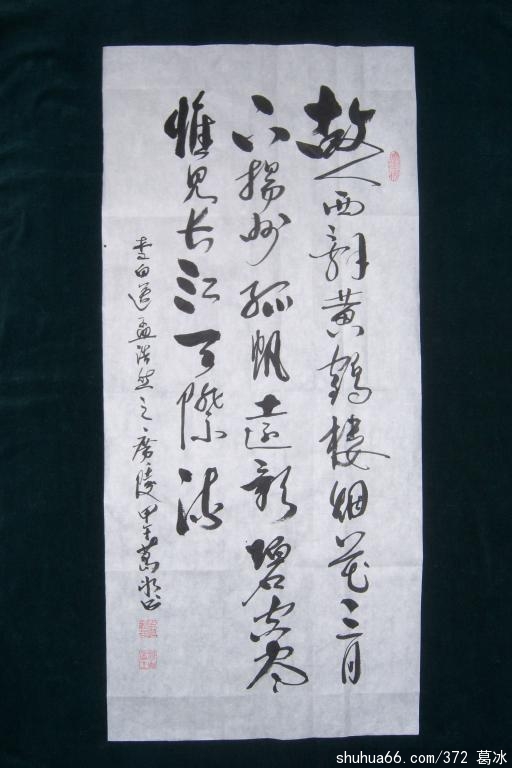 故人西辞黄鶴楼烟花三月
下揚州孤帆遠影碧空尽
惟見长江天際流
李白送孟浩然之廣陵甲午葛冰书
shuhua66.com/372 葛冰